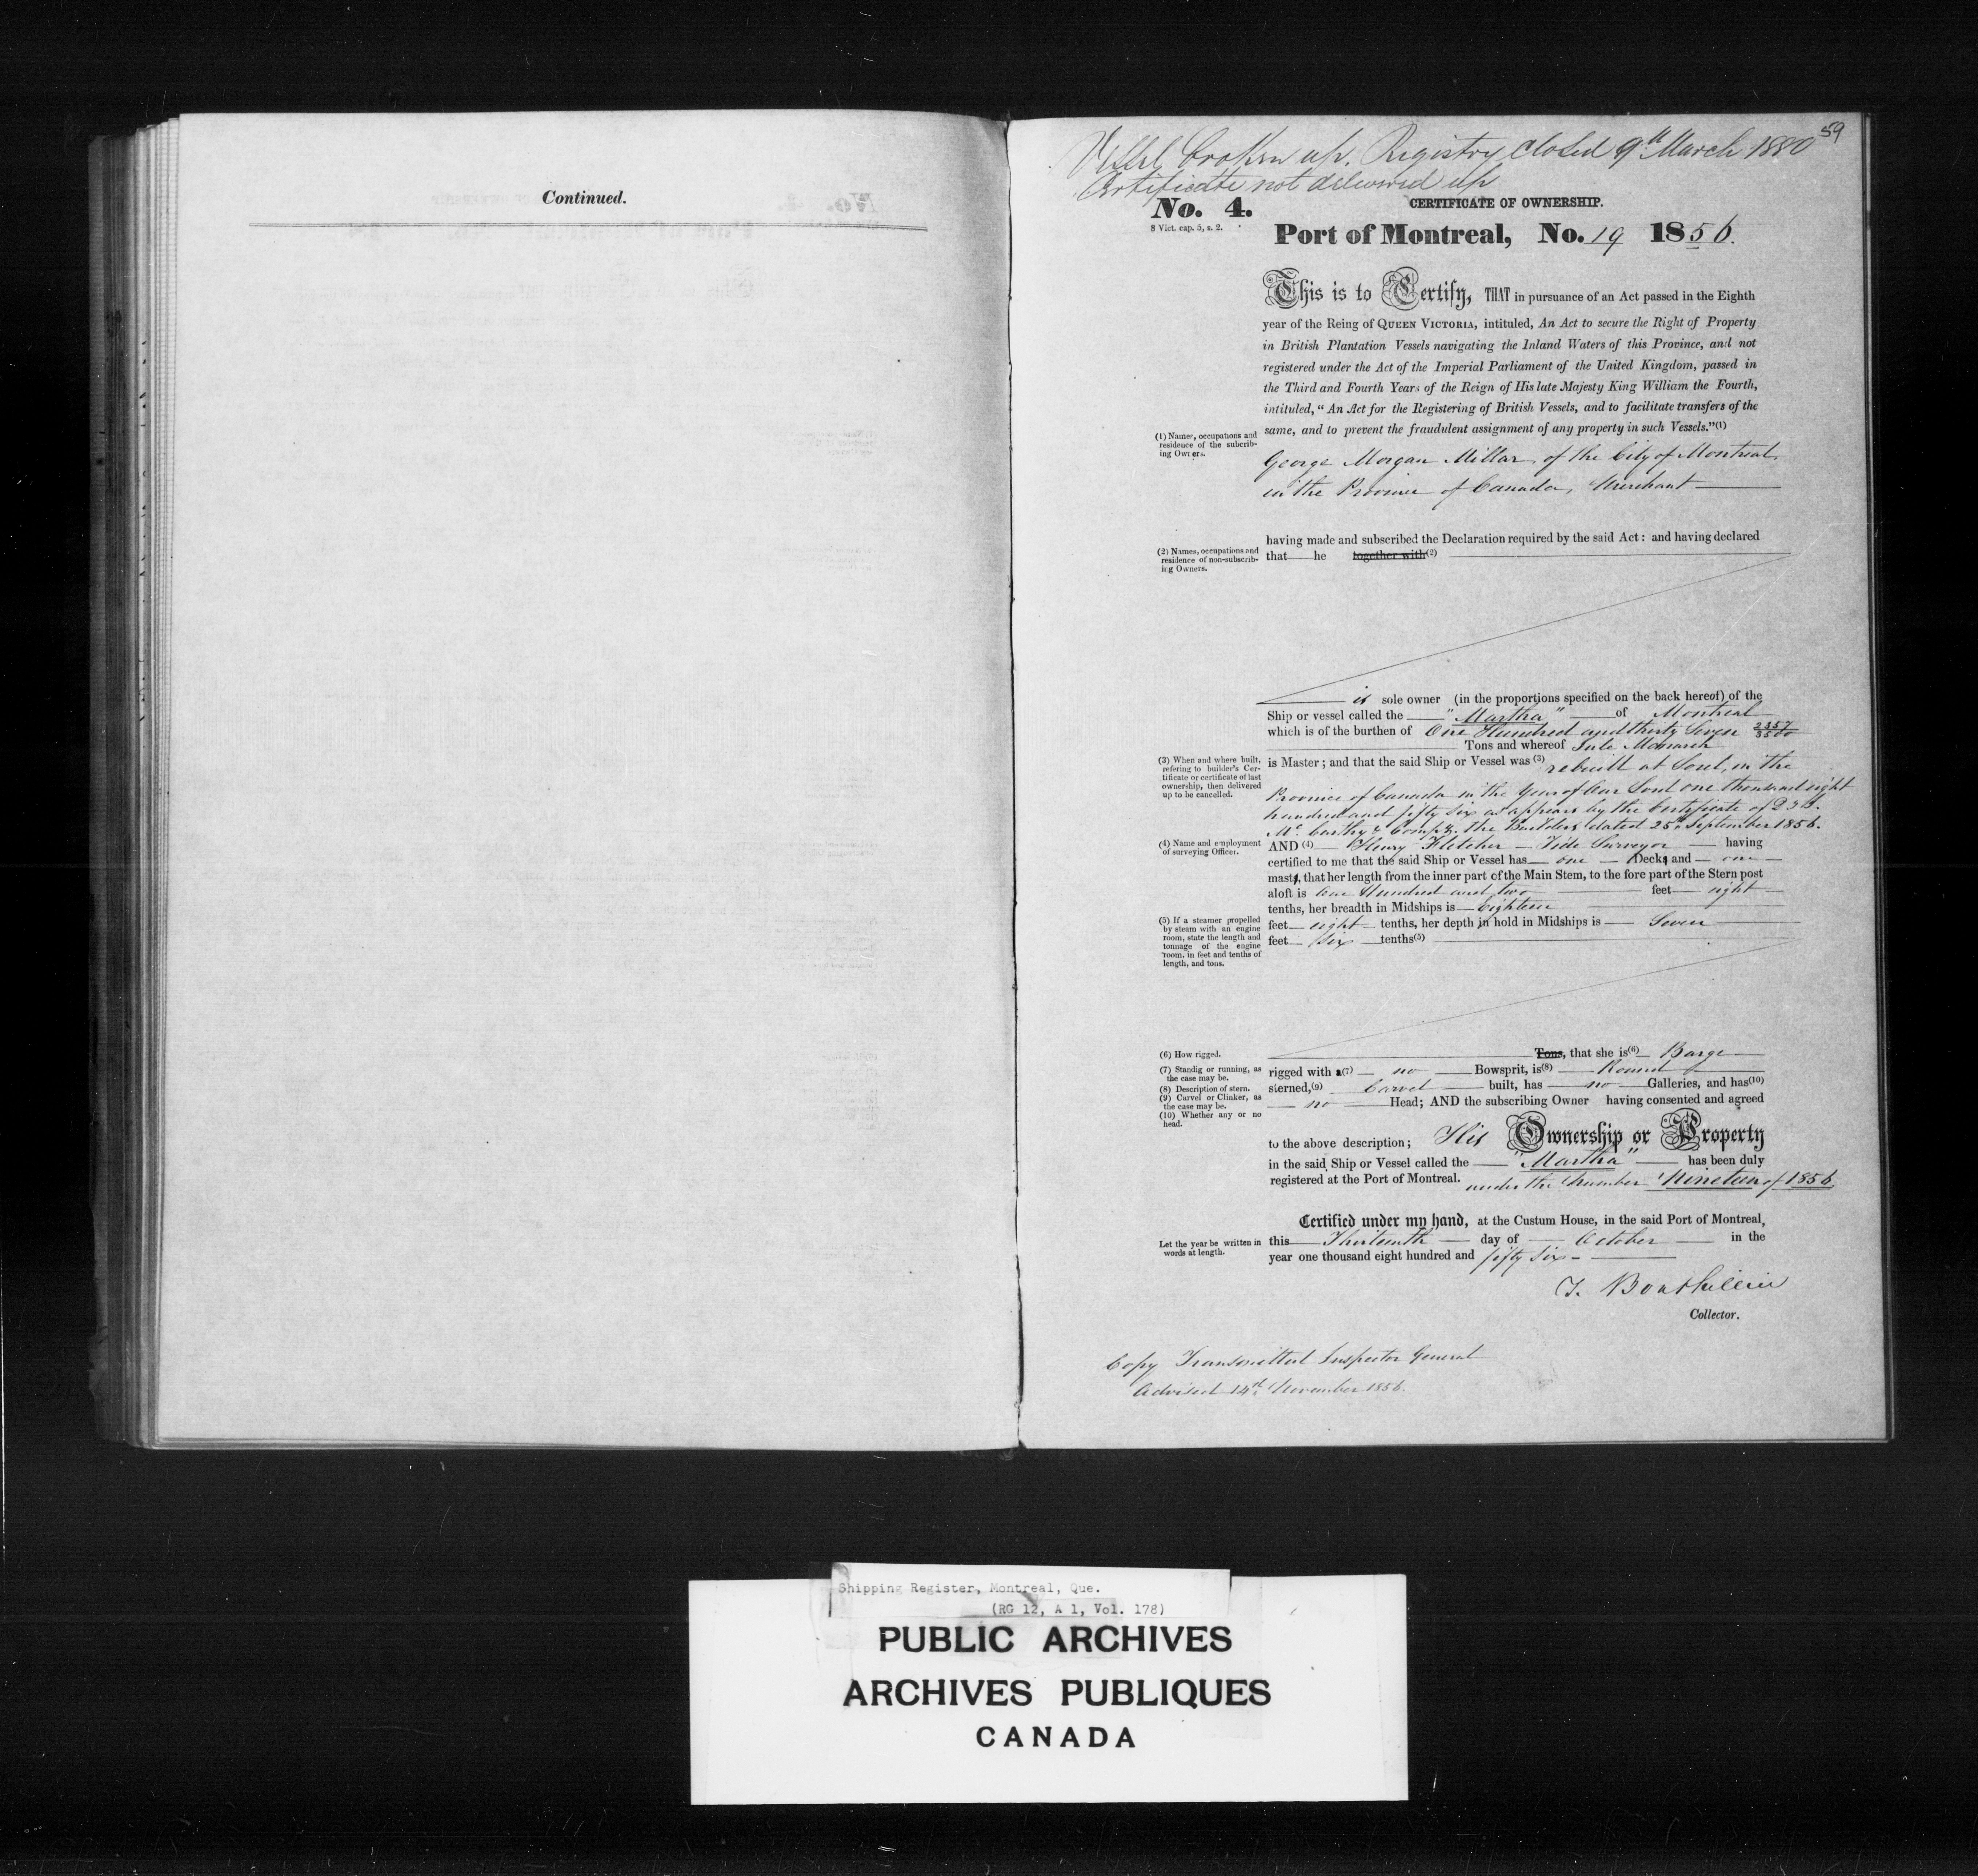 Continued.
59
Vessel broken up. Registry closed 9th March 1880
Certificate not delivered up
No. 4.
CERTIFICATE OF OWNERSHIP.
8 Vict. cap. 5, s. 2.
Port of Montreal, No. 19 1856.
This is to Certify, THAT in pursuance of an Act passed in the Eighth
year of the Reing of QUEEN VICTORIA, intituled, An Act to secure the Right of Property
in British Plantation Vessels navigating the Inland Waters of this Province, and not
registered under the Act of the Imperial Parliament of the United Kingdom, passed in
the Third and Fourth Years of the Reign of His late Majesty King William the Fourth,
intituled, "An Act for the Registering of British Vessels, and to facilitate transfers of the
same, and to prevent the fraudulent assignment of any property in such Vessels."(1)
(1) Names, occupations and
residence of the subcrib-
ing Owners.
George Morgan Millar, of the City of Montreal,
in the Province of Canada, Merchant
having made and subscribed the Declaration required by the said Act: and having declared
that he together with(2)
(2) Names, occupations and
residence of non-subscrib-
ing Owners.
is sole owner (in the proportions specified on the back hereof) of the
Ship or vessel called the "Martha" of Montreal
which is of the burthen of One Hundred and thirty Seven 2357/3500
Tons and whereof Jule Monarch
is Master; and that the said Ship or Vessel was (3) rebuilt at Sorel, in the
(3) When and where built,
refering to builder's Cer-
tificate or certificate of last
ownership, then delivered
up to be cancelled.
Province of Canada in the Year of Our Lord one thousand eight
hundred and fifty six as appears by the Certificate of D & J
McCarthy & Compy. the Builders dated 25th September 1856.
(4) Name and employment
of surveying Officer.
AND (4) Henry Fletcher Tide Surveyor having
certified to me that the said Ship or Vessel has one Decks and one
masts, that her length from the inner part of the Main Stem, to the fore part of the Stern post
aloft is One Hundred and two feet eight
tenths, her breadth in Midships is Eighteen
feet eight tenths, her depth in hold in Midships is Seven
feet six tenths(5)
(5) If a steamer propelled
by steam with an engine
room, state the length and
tonnage of the engine
room, in feet and tenths of
length, and tons.
(6) How rigged.
Tons, that she is(6) Barge
(7) Standig or running, as
the case may be.
(8) Description of stern.
(9) Carvel or Clinker, as
the case may be.
(10) Whether any or no
head.
rigged with a(7) no Bowsprit, is(8) Round
sterned,(9) Carvel built, has no Galleries, and has(10)
no Head; AND the subscribing Owner having consented and agreed
to the above description; His Ownership or Property
in the said Ship or Vessel called the "Martha" has been duly
registered at the Port of Montreal. under the Number Nineteen of 1856
Certified under my hand, at the Custum House, in the said Port of Montreal,
Let the year be written in
words at length.
this Thirteenth day of October in the
year one thousand eight hundred and fifty six
T. Bouthillier
Collector.
Copy Transmitted Inspector General
Advised 14th November 1856.
Shipping Register, Montreal, Que.
(RG 12, A 1, Vol. 178)
PUBLIC ARCHIVES
ARCHIVES PUBLIQUES
CANADA